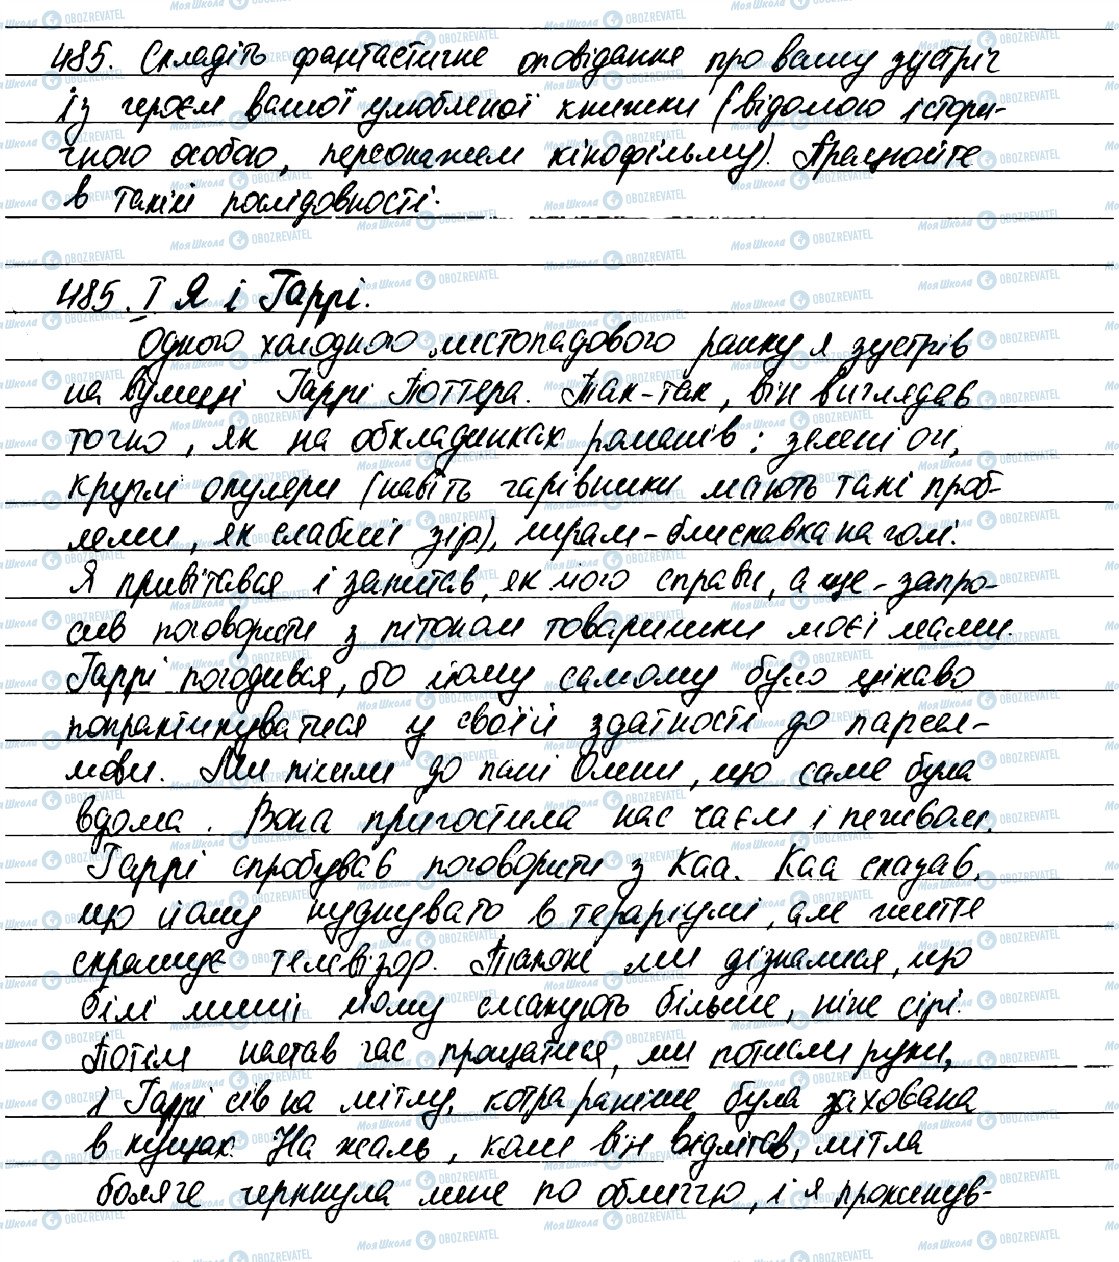 485. Складіть фантастичне оповідання про вашу зустріч
із героєм вашої улюбленої книжки (відомою істори-
чною особою, персонажем кінофільму). Працюйте
в такій послідовності.
485. I Я і Гаррі.
Одного холодного листопадового ранку я зустрів
на вулиці Гаррі Поттера. Так-так, він виглядав
точно, як на обкладинках романів: зелені очі,
круглі окуляри (навіть чарівники мають такі проб-
леми, як слабкий зір), шрам-блискавка на чолі.
Я привітався і запитав, як його справи, а ще - запро-
сив поговорити з пітоном товаришки моєї мами.
Гаррі погодився, бо йому самому було цікаво
попрактикуватися у своїй здатності до парсел-
мови. Ми пішли до пані Олени, що саме була
вдома. Вона пригостила нас чаєм і печивом.
Гаррі спробував поговорити з Каа. Каа сказав,
що йому нуднувато в тераріумі, але життя
скрашує телевізор. Також ми дізналися, що
білі миші йому смакують більше, ніж сірі.
Потім настав час прощатися, ми потисли руки,
і Гаррі сів на мітлу, котра раніше була захована
в кущах. На жаль, коли він відлітав, мітла
боляче черкнула мене по обличчю, і я прокинув-